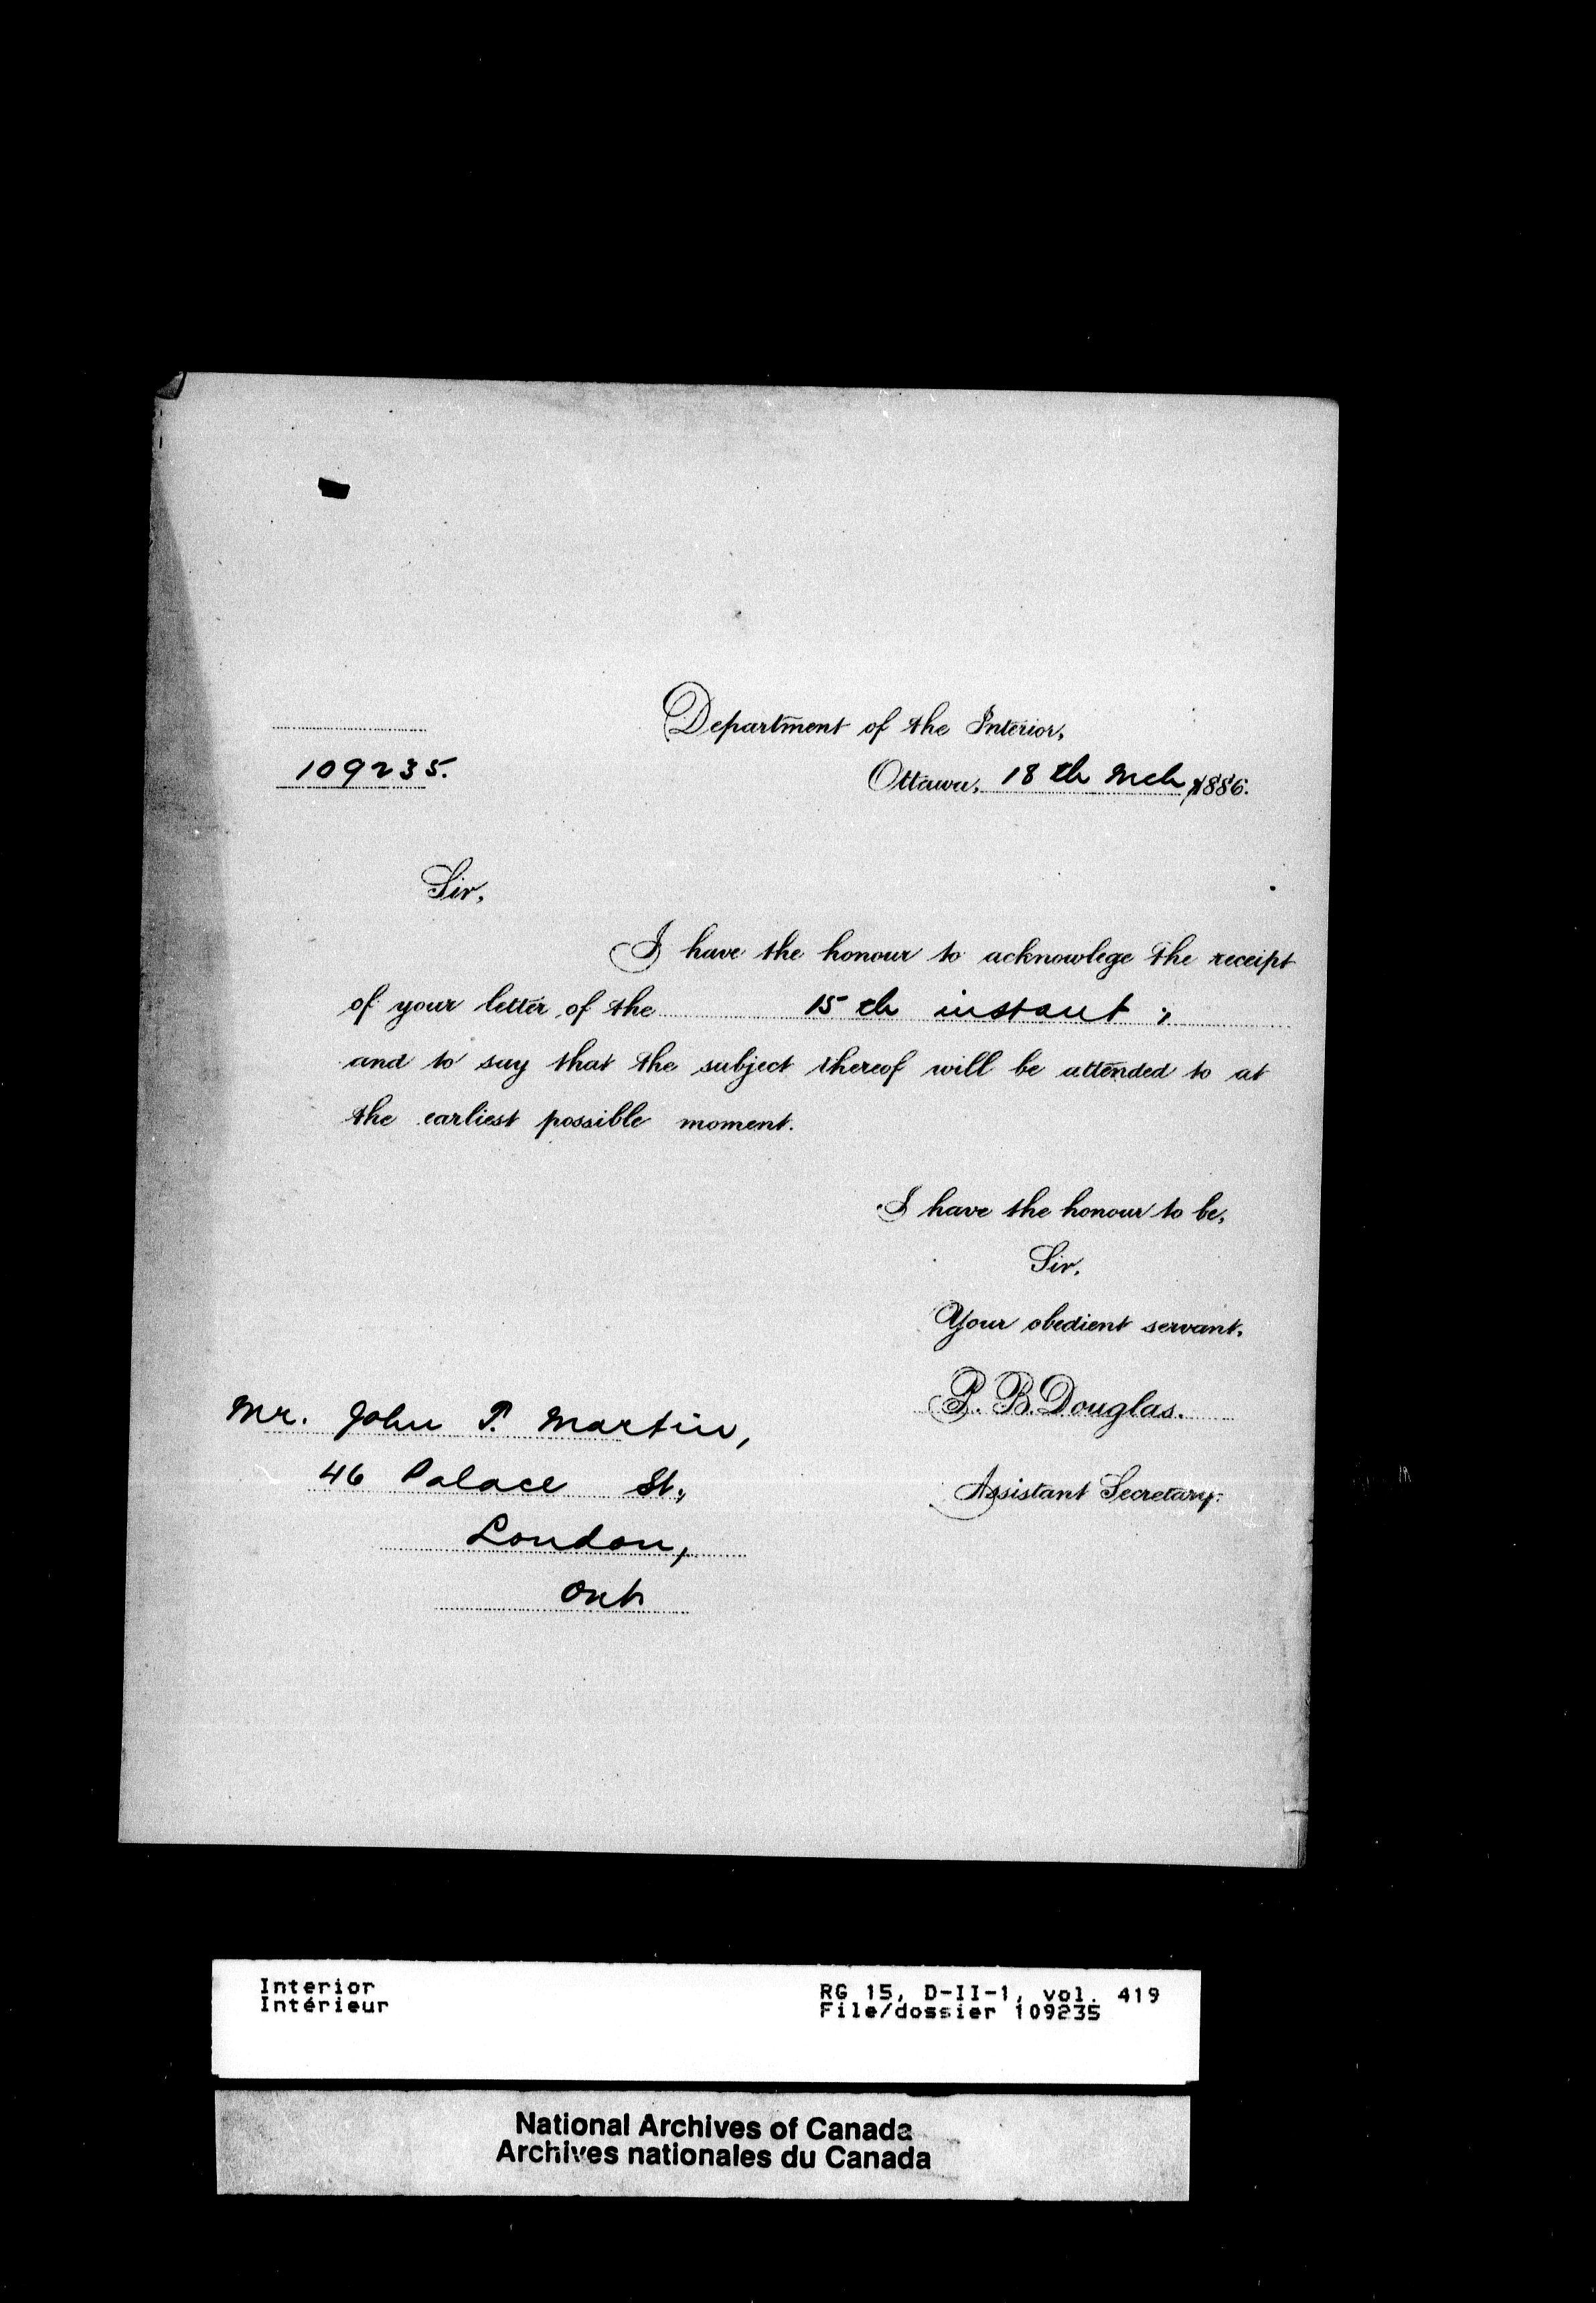 Department of the Interior,
109235.
Ottawa, 18th Mch, 1886.
Sir,
I have the honour to acknowlege the receipt
of your letter of the 15th instant;
and to say that the subject thereof will be attended to at
the earliest possible moment.
I have the honour to be,
Sir,
Your obedient servant,
P. B. Douglas.
Assistant Secretary.
Mr. John P. Martin,
46 Palace St.,
London,
Ont.
Interior
Intérieur
RG 15, D-II-1, vol. 419
File/dossier 109235
National Archives of Canada
Archives nationales du Canada